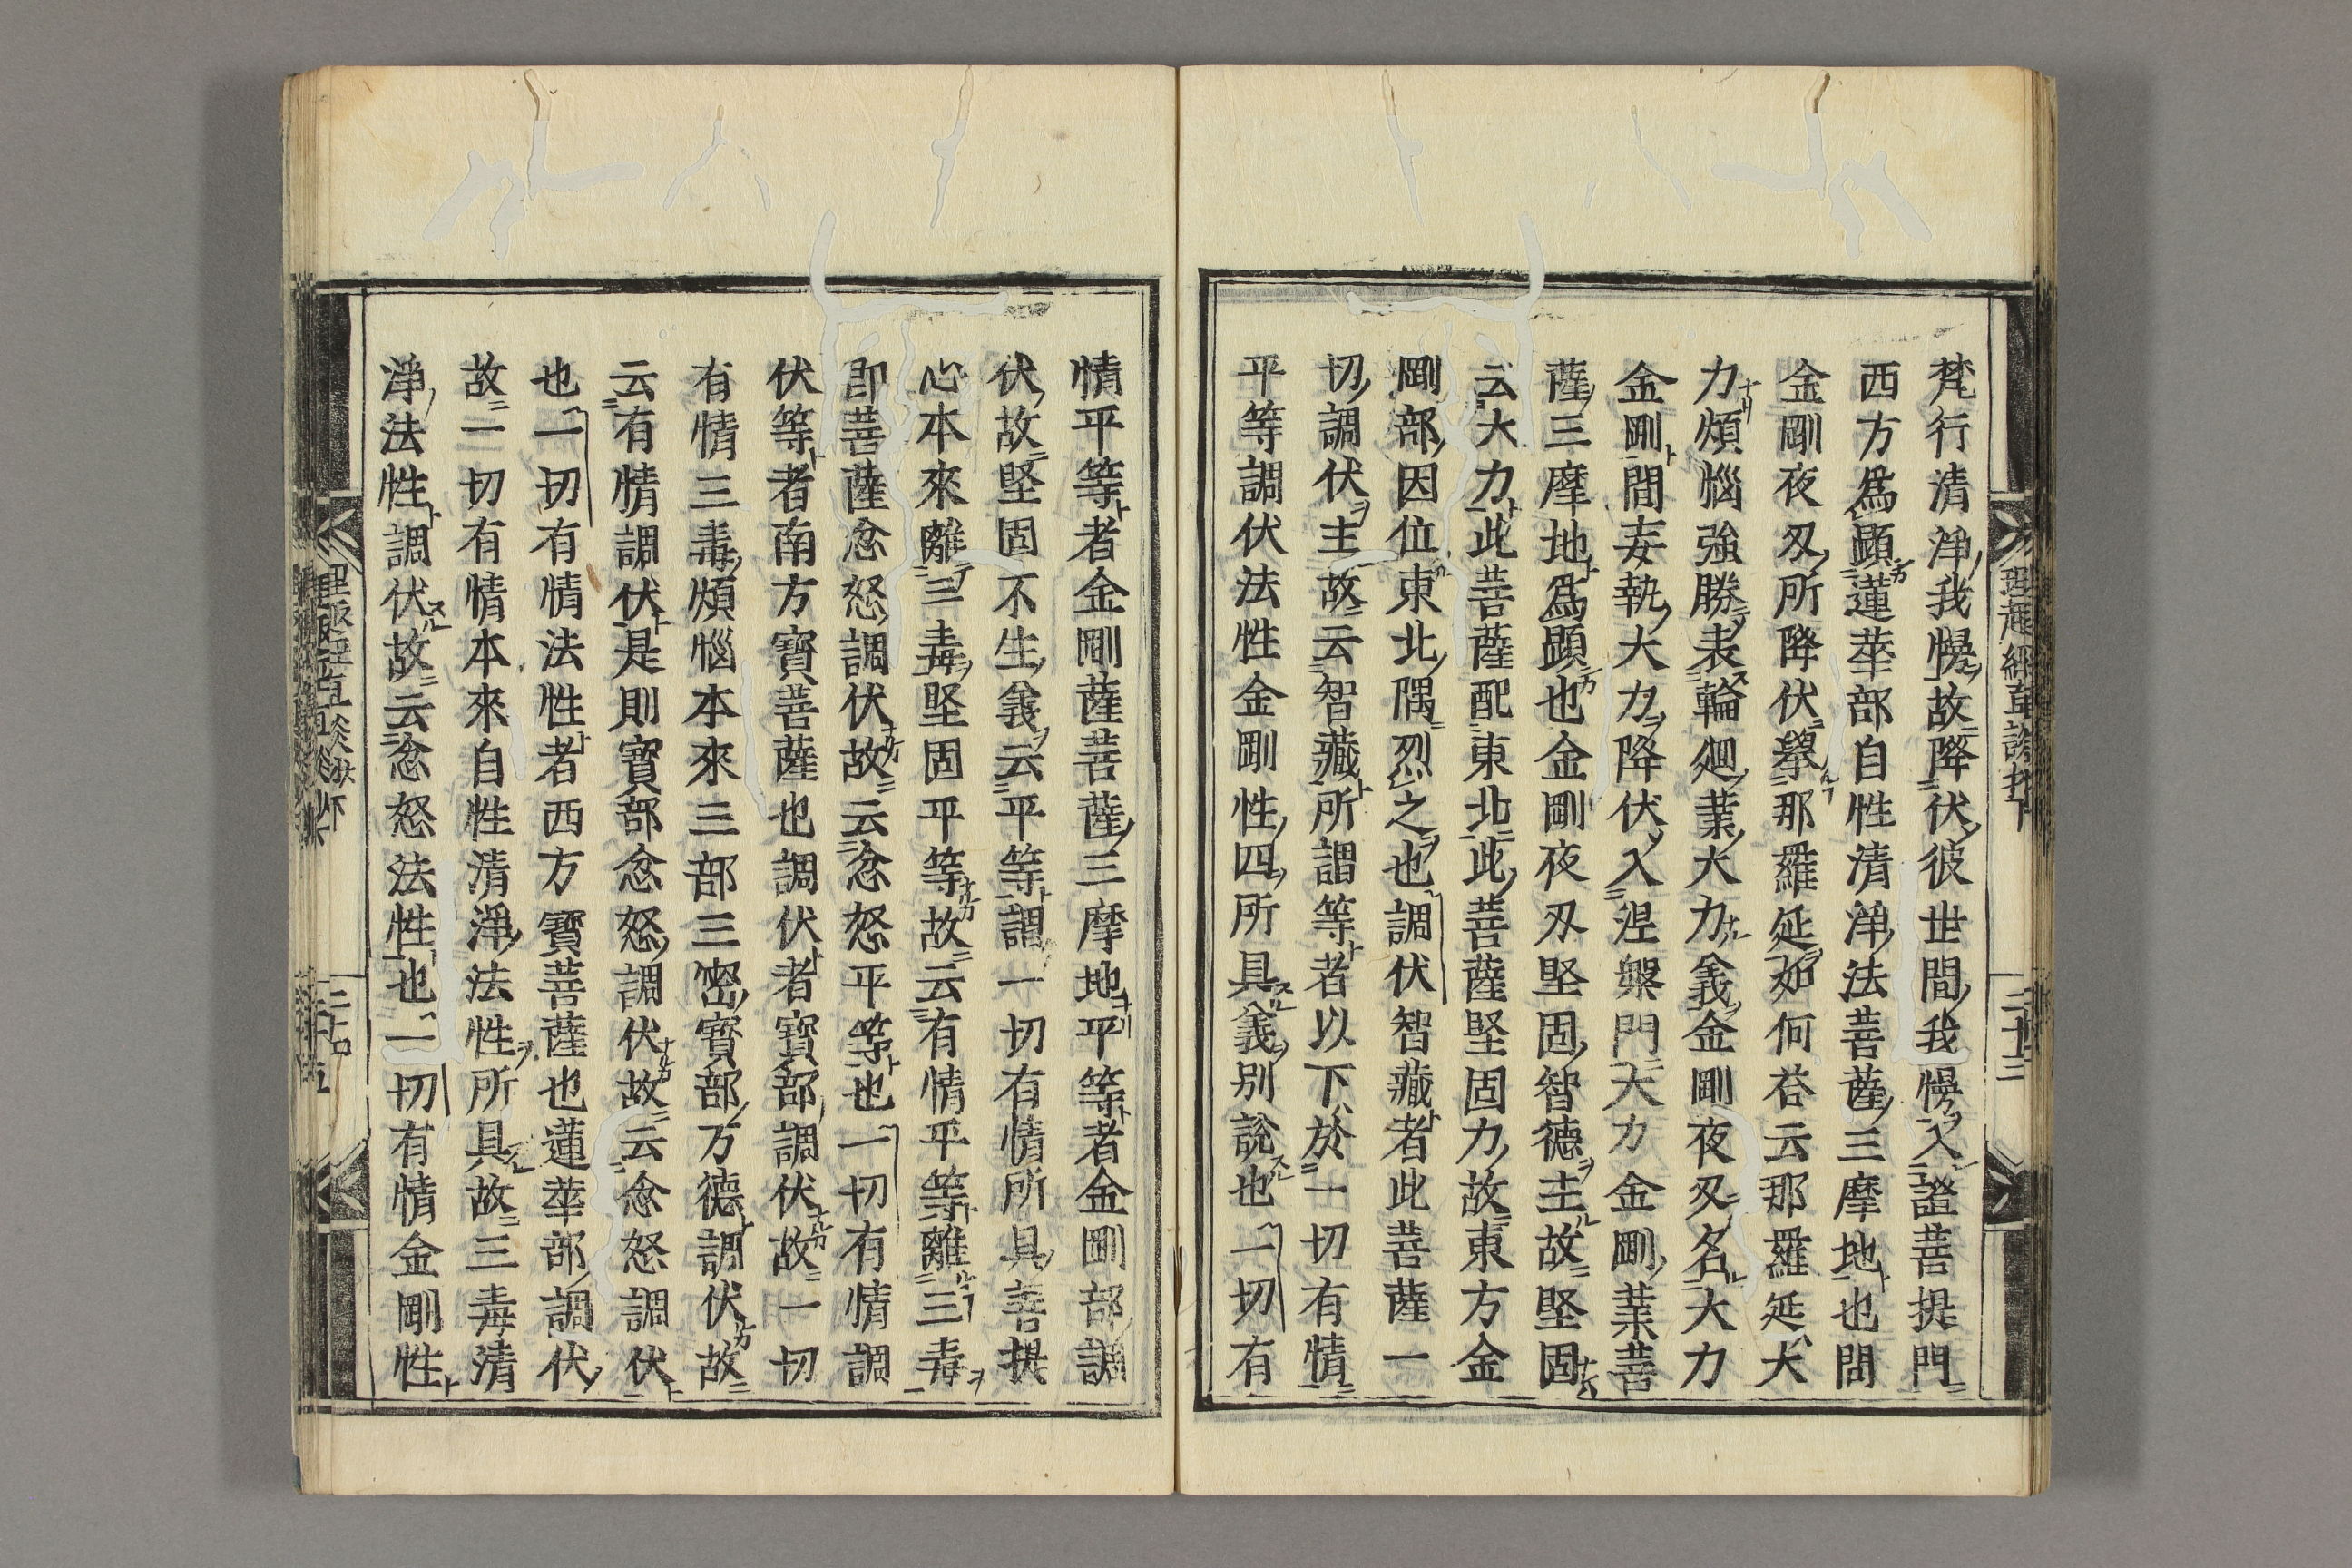 梵行清淨我慢故降伏彼世間我慢入證菩提門
西方爲顯蓮華部自性清淨法菩薩三摩地也問
金剛夜叉所降伏擧那羅延如何荅云那羅延大
力煩惱強勝表輪廻業大力義金剛夜叉名大力
金剛間妄執大力降伏入涅槃門大力金剛業菩
薩三摩地爲顯也金剛夜叉堅固智德主故堅固
云大力此菩薩配東北此菩薩堅固力故東方金
剛部因位東北隅烈之也調伏智藏者此菩薩一
切調伏主故云智藏所謂等者以下於一切有情
平等調伏法性金剛性四所具義別說也一切有
情平等者金剛薩菩薩三摩地平等者金剛部調
伏故堅固不生義云平等謂一切有情所具菩提
心本來離三毒堅固平等故云有情平等離三毒
卽菩薩忿怒調伏故云忿怒平等也一切有情調
伏等者南方寶菩薩也調伏者寶部調伏故一切
有情三毒煩惱本來三部三密寶部万德調伏故
云有情調伏是則寶部忿怒調伏故云忿怒調伏
也一切有情法性者西方寶菩薩也蓮華部調伏
故一切有情本來自性清淨法性所具故三毒清
淨法性調伏故云忿怒法性也一切有情金剛性